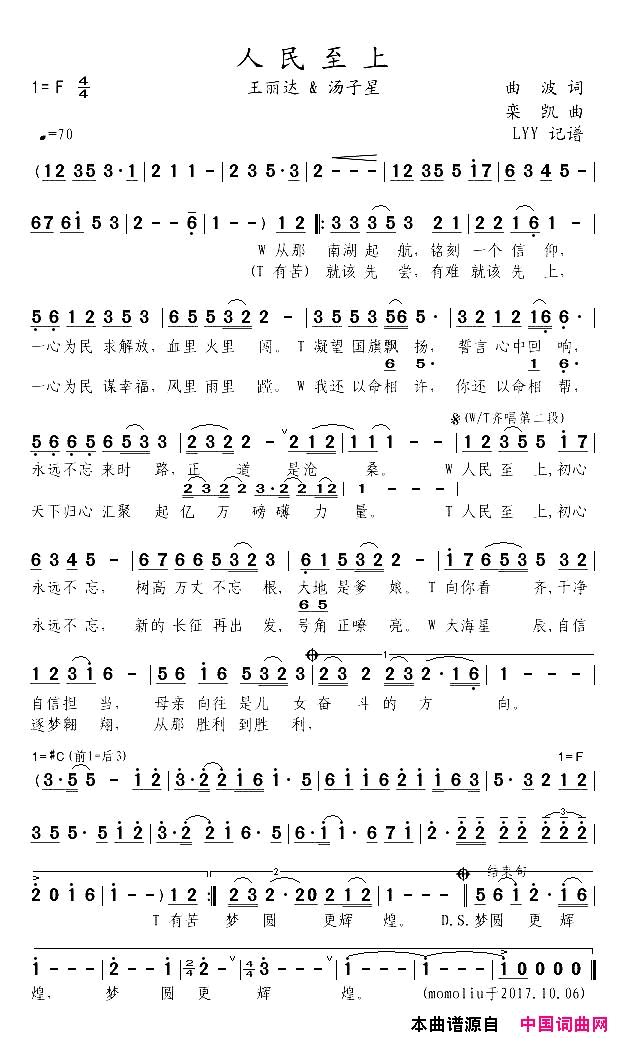 人民至上
1=F 4/4
王丽达 & 汤子星
曲 波 词
栾 凯 曲
♩=70
LYY 记谱
(1 2 3 5 3·1 | 2 1 1 - | 2 3 5·3 | 2 - - - | 1 2 3 5 5 1 7 | 6 3 4 5 - |
6 7 6 1 5 3 | 2 - - 6 | 1 - - ) 1 2 |: 3 3 3 5 3 2 1 | 2 2 1 6 1 - |
W从那 南湖起航，铭刻一个信仰，
(T有苦) 就该先尝，有难就该先上，
5 6 1 2 3 5 3 | 6 5 5 3 2 2 | 2 - 3 5 | 5 3 5 5 6 5· | 3 2 1 2 1 6 6· |
一心为民 求解放，血里火里 闯。T凝望 国旗飘扬，誓言心中回响，
6 5· 1 6·
一心为民 谋幸福，风里雨里 蹚。W我还 以命相许，你还以命相帮，
𝄋(W/T齐唱第二段)
5 6 6 5 6 5 3 3 | 2 3 2 2 - ∨ 2 1 2 | 1 1 1 - - | 1 2 3 5 5 1 7 |
永远不忘 来时路，正道 是沧 桑。W人民至上,初心
2 3 2 2 3·2 2 1 2 | 1 - -
天下归心 汇聚起亿万磅礴力量。T人民至上,初心
6 3 4 5 - | 6 7 6 6 5 3 2 3 | 6 1 5 3 2 2 - | 1 7 6 5 3 5 3 2 |
永远不忘，树高万丈不忘根，大地是爹娘。T向你看齐,干净
6 5
永远不忘，新的长征再出发，号角正嘹亮。W大海星辰,自信
1 2 3 6 - | 5· 3 2 1 6 | 1 6 5 3 2 3 | 2 3 2 2 3 2·1 6 | 1 - - - |
1
自信担当，母亲向往是儿女奋斗的方向。
逐梦翱翔，从那胜利到胜利，
1=#C(前1=后3)
1=F
(3·5 5 - | 1 2 | 3·2 2 1 6 1· | 6 1 1 6 2 1 6 1 | 5·3 2 1 2 |
3 5 5· 5 1 2 | 3·2 1 6 1 | 5 1 6 5 1 2 | 2·2 2 2 2 2 2 |
3
2 0 1 6 | 1 - - - ) 1 2 :| 2 3 2·2 0 2 1 2 | 1 - - - | 5 6 1 2·2 1 |
2
结束句
T有苦 梦圆 更辉煌。D.S.梦圆更辉
1 - - - | 2 - 1 ∨ | 2/4 2 - ∨ | 4/4 3 - - - ∨ | 1 - 1 - | 1 0 0 0 0 ||
煌，梦圆更辉煌。(momoliu于2017.10.06)
本曲谱源自 中国词曲网